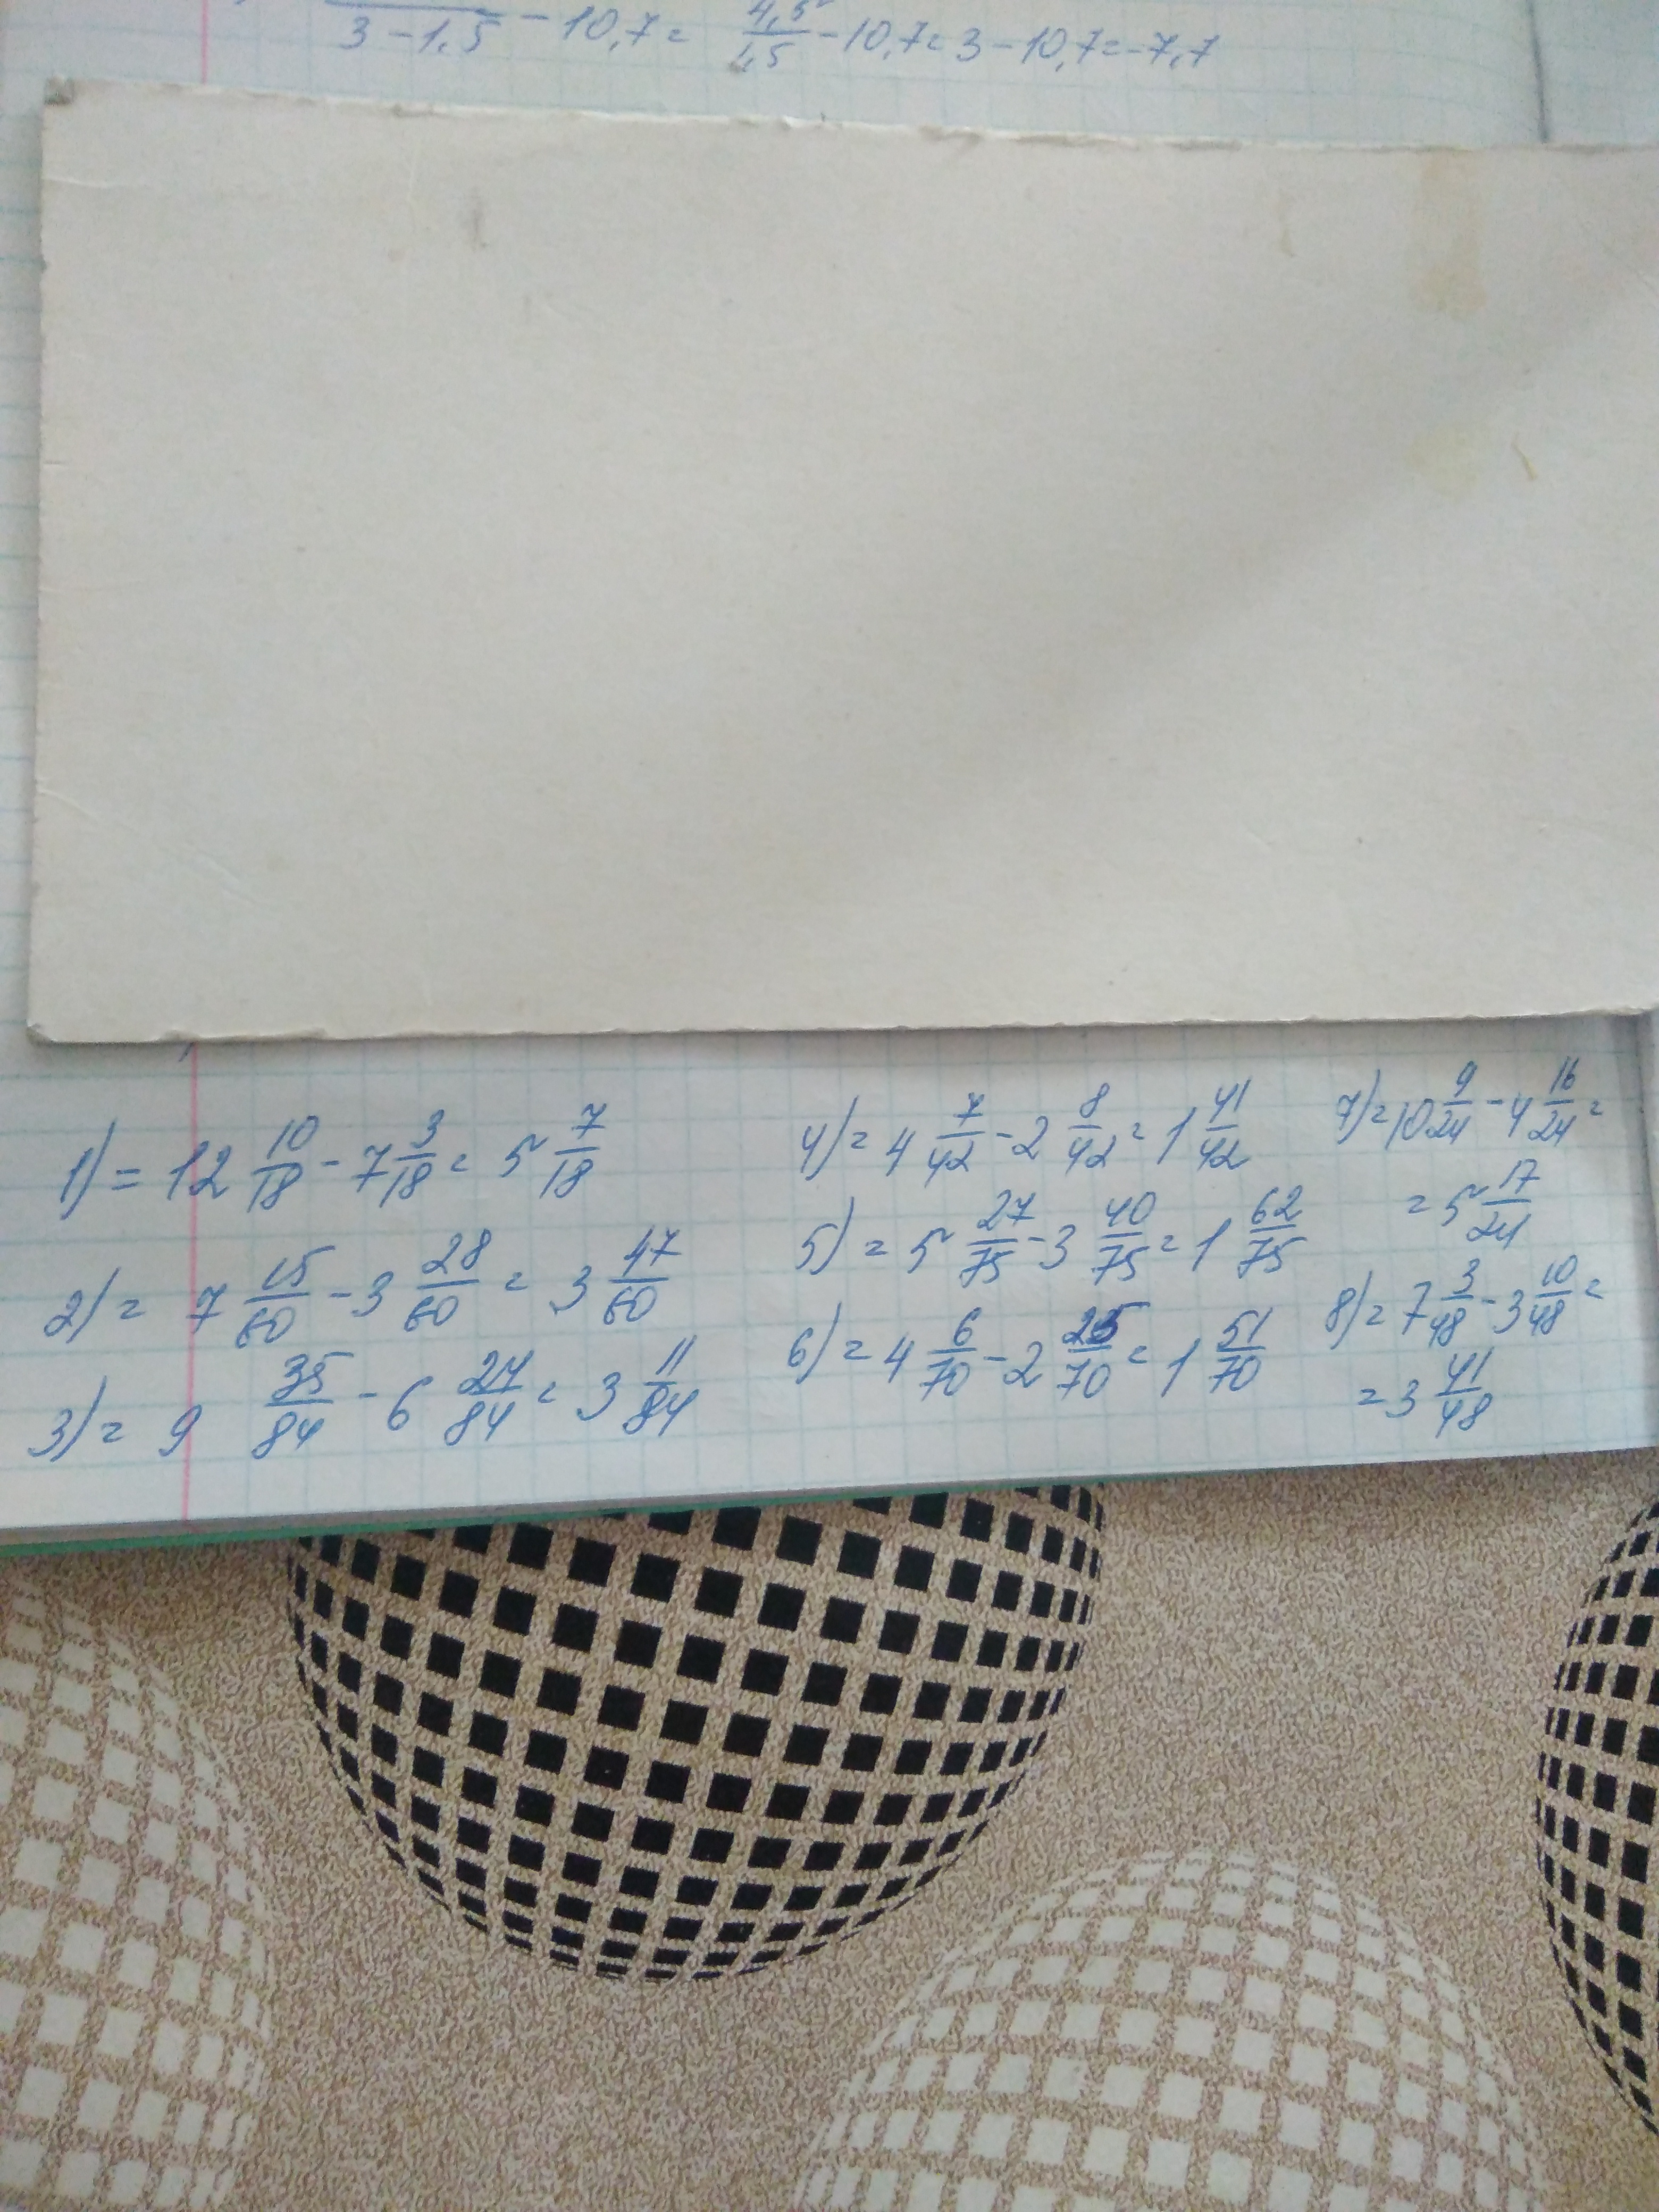 3 - 1,5 - 10,7 = 4,5/1,5 - 10,7 = 3 - 10,7 = -7,7
1) = 12 10/18 - 7 3/18 = 5 7/18
2) = 7 15/60 - 3 28/60 = 3 47/60
3) = 9 35/84 - 6 24/84 = 3 11/84
4) = 4 7/42 - 2 8/42 = 1 41/42
5) = 5 27/75 - 3 40/75 = 1 62/75
6) = 4 6/70 - 2 25/70 = 1 51/70
7) = 10 9/24 - 4 16/24 =
= 5 17/24
8) = 7 3/48 - 3 10/48 =
= 3 41/48